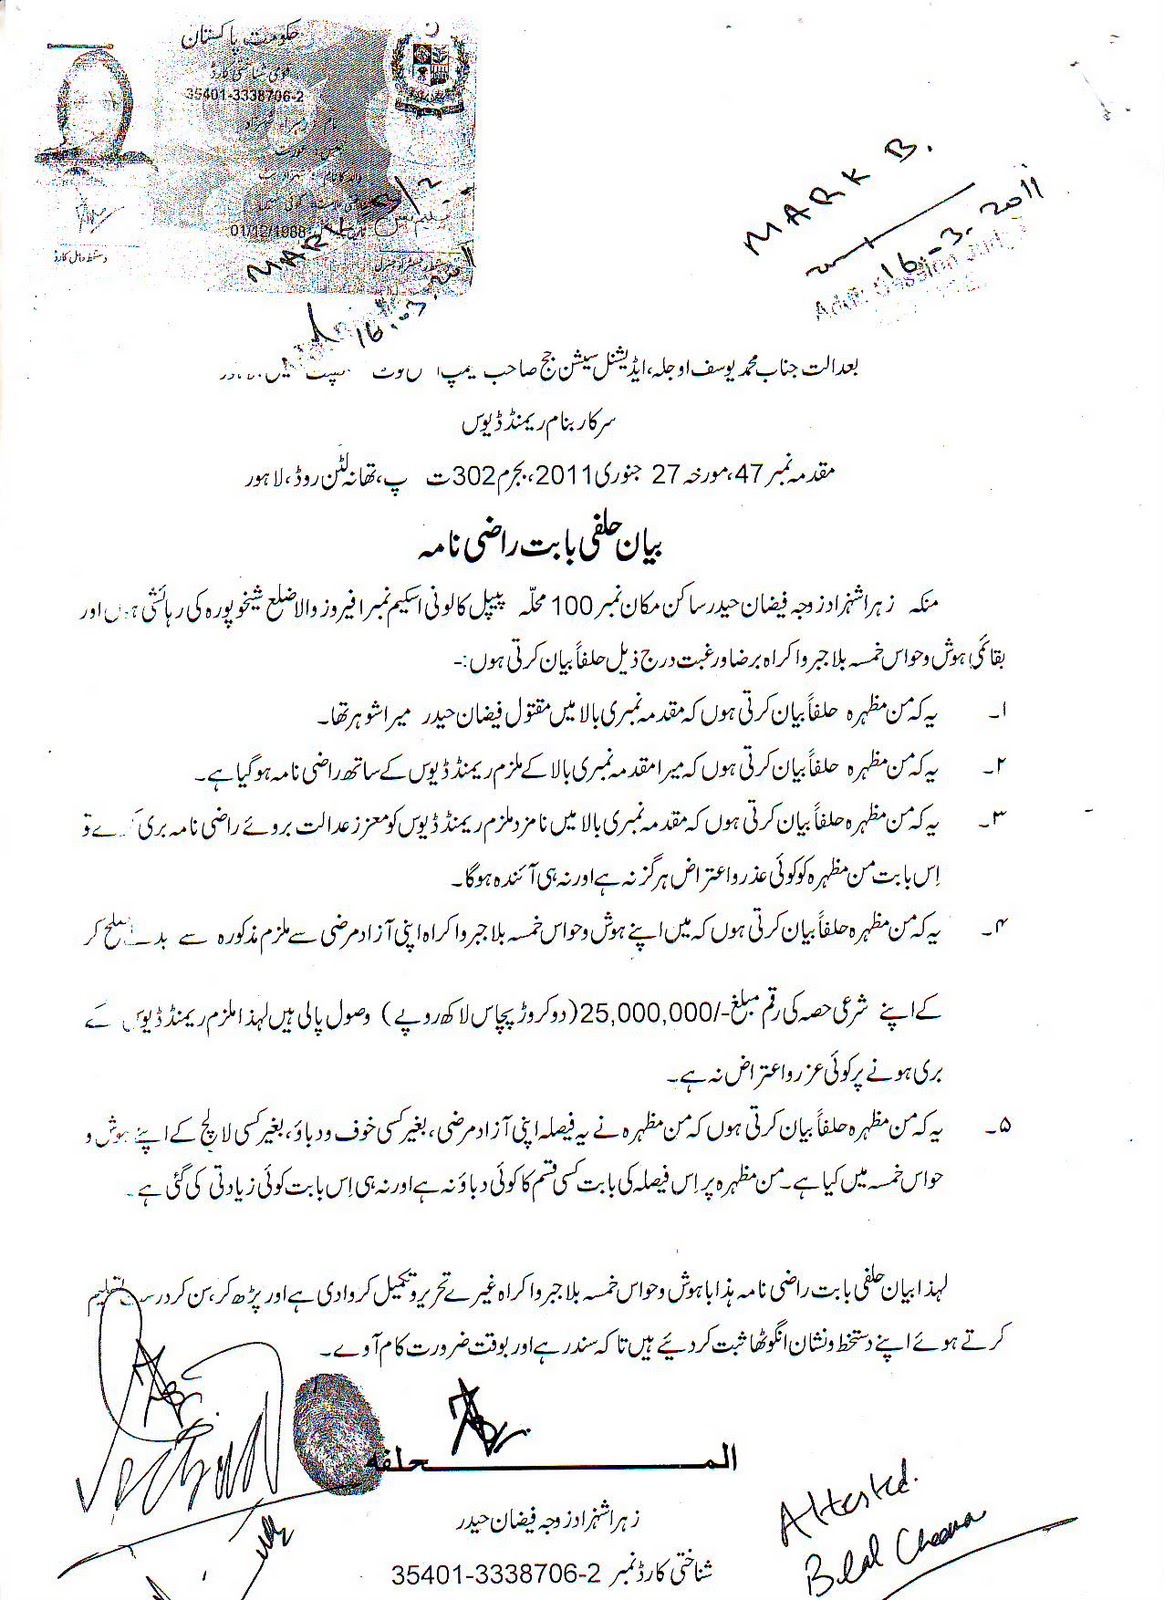 حکومت پاکستان
قومی شناختی کارڈ
35401-3338706-2
نام: زہرا شہزاد
جنس: عورت
01/12/1988
دستخط حامل کارڈ
MARK B/2
16.03.2011
MARK B.
16-3-2011
Addl: Session Judge
بعدالت جناب محمد یوسف اوجلہ، ایڈیشنل سیشن جج صاحب
سرکار بنام ریمنڈ ڈیوس
مقدمہ نمبر 47، مورخہ 27 جنوری 2011، بجرم 302 ت پ، تھانہ لٹن روڈ، لاہور
بیان حلفی بابت راضی نامہ
منکہ زہرا شہزاد زوجہ فیضان حیدر ساکن مکان نمبر 100 محلّہ پیپل کالونی اسکیم نمبر ۱ فیروز والا ضلع شیخوپورہ کی رہائشی ہوں اور
بقائمی ہوش و حواس خمسہ بلا جبر و اکراہ برضا و رغبت درج ذیل حلفاً بیان کرتی ہوں:-
۱۔ یہ کہ من مظہرہ حلفاً بیان کرتی ہوں کہ مقدمہ نمبری بالا میں مقتول فیضان حیدر میرا شوہر تھا۔
۲۔ یہ کہ من مظہرہ حلفاً بیان کرتی ہوں کہ میرا مقدمہ نمبری بالا کے ملزم ریمنڈ ڈیوس کے ساتھ راضی نامہ ہو گیا ہے۔
۳۔ یہ کہ من مظہرہ حلفاً بیان کرتی ہوں کہ مقدمہ نمبری بالا میں نامزد ملزم ریمنڈ ڈیوس کو معزز عدالت بروئے راضی نامہ بری کرے تو
اِس بابت من مظہرہ کو کوئی عذر و اعتراض ہرگز نہ ہے اور نہ ہی آئندہ ہوگا۔
۴۔ یہ کہ من مظہرہ حلفاً بیان کرتی ہوں کہ میں اپنے ہوش و حواس خمسہ بلا جبر و اکراہ اپنی آزاد مرضی سے ملزم مذکورہ سے بدل صلح کر
کے اپنے شرعی حصہ کی رقم مبلغ -/25,000,000 (دو کروڑ پچاس لاکھ روپے) وصول پالی ہیں لہذا ملزم ریمنڈ ڈیوس کے
بری ہونے پر کوئی عزر و اعتراض نہ ہے۔
۵۔ یہ کہ من مظہرہ حلفاً بیان کرتی ہوں کہ من مظہرہ نے یہ فیصلہ اپنی آزاد مرضی، بغیر کسی خوف و دباؤ، بغیر کسی لالچ کے اپنے ہوش و
حواس خمسہ میں کیا ہے۔ من مظہرہ پر اِس فیصلہ کی بابت کسی قسم کا کوئی دباؤ نہ ہے اور نہ ہی اِس بابت کوئی زیادتی کی گئی ہے۔
لہذا بیان حلفی بابت راضی نامہ ہذا باہوش و حواس خمسہ بلا جبر و اکراہ غیرے تحریر و تکمیل کروا دی ہے اور پڑھ کر، سن کر درست تسلیم
کرتے ہوئے اپنے دستخط و نشان انگوٹھا ثبت کر دیئے ہیں تاکہ سند رہے اور بوقت ضرورت کام آوے۔
المـــــحلفہ
زہرا شہزاد زوجہ فیضان حیدر
شناختی کارڈ نمبر 35401-3338706-2
Attested.
Bilal Cheema